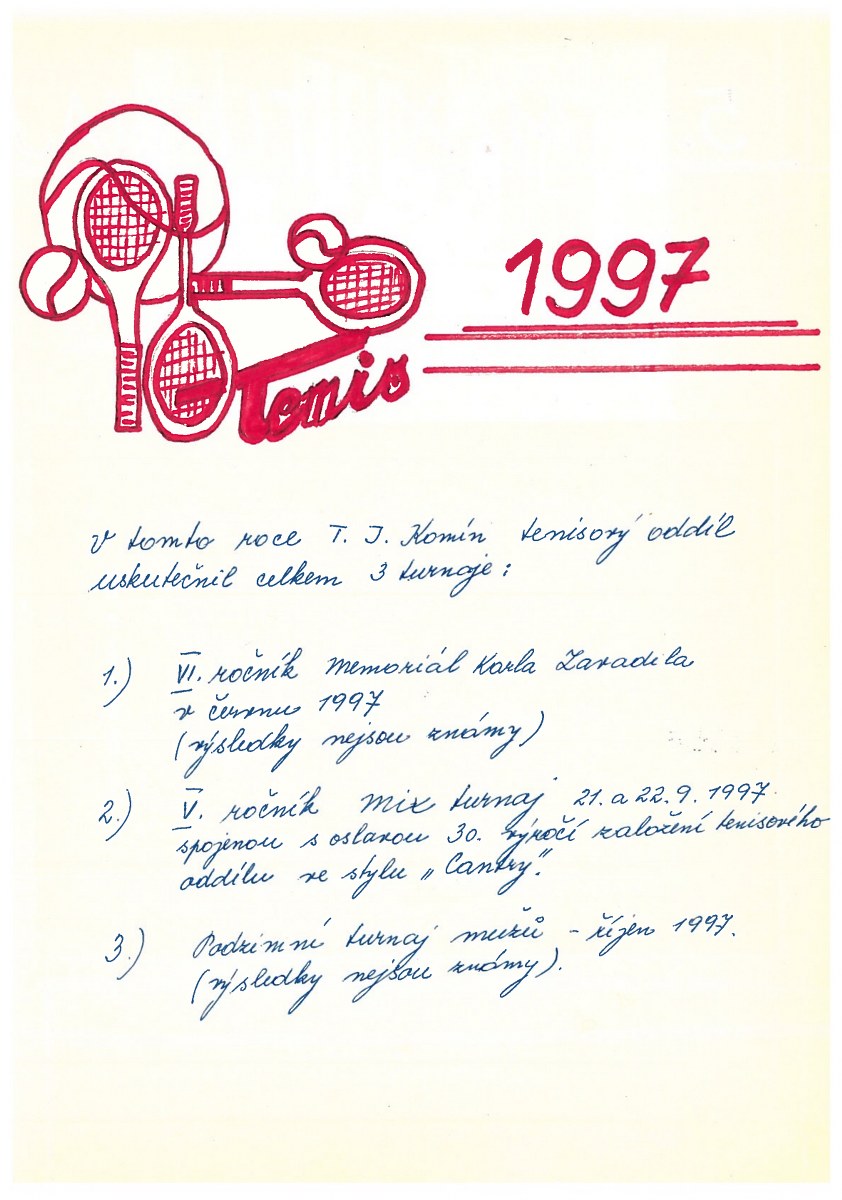 1997
Tenis
V tomto roce T. J. Komín tenisový oddíl
uskutečnil celkem 3 turnaje:
1.) VI. ročník Memoriál Karla Zavadila
v červnu 1997
(výsledky nejsou známy)
2.) V. ročník Mix turnaj 21. a 22. 9. 1997
spojenou s oslavou 30. výročí založení tenisového
oddílu ve stylu „Cantry".
3.) Podzimní turnaj mužů - říjen 1997.
(výsledky nejsou známy).